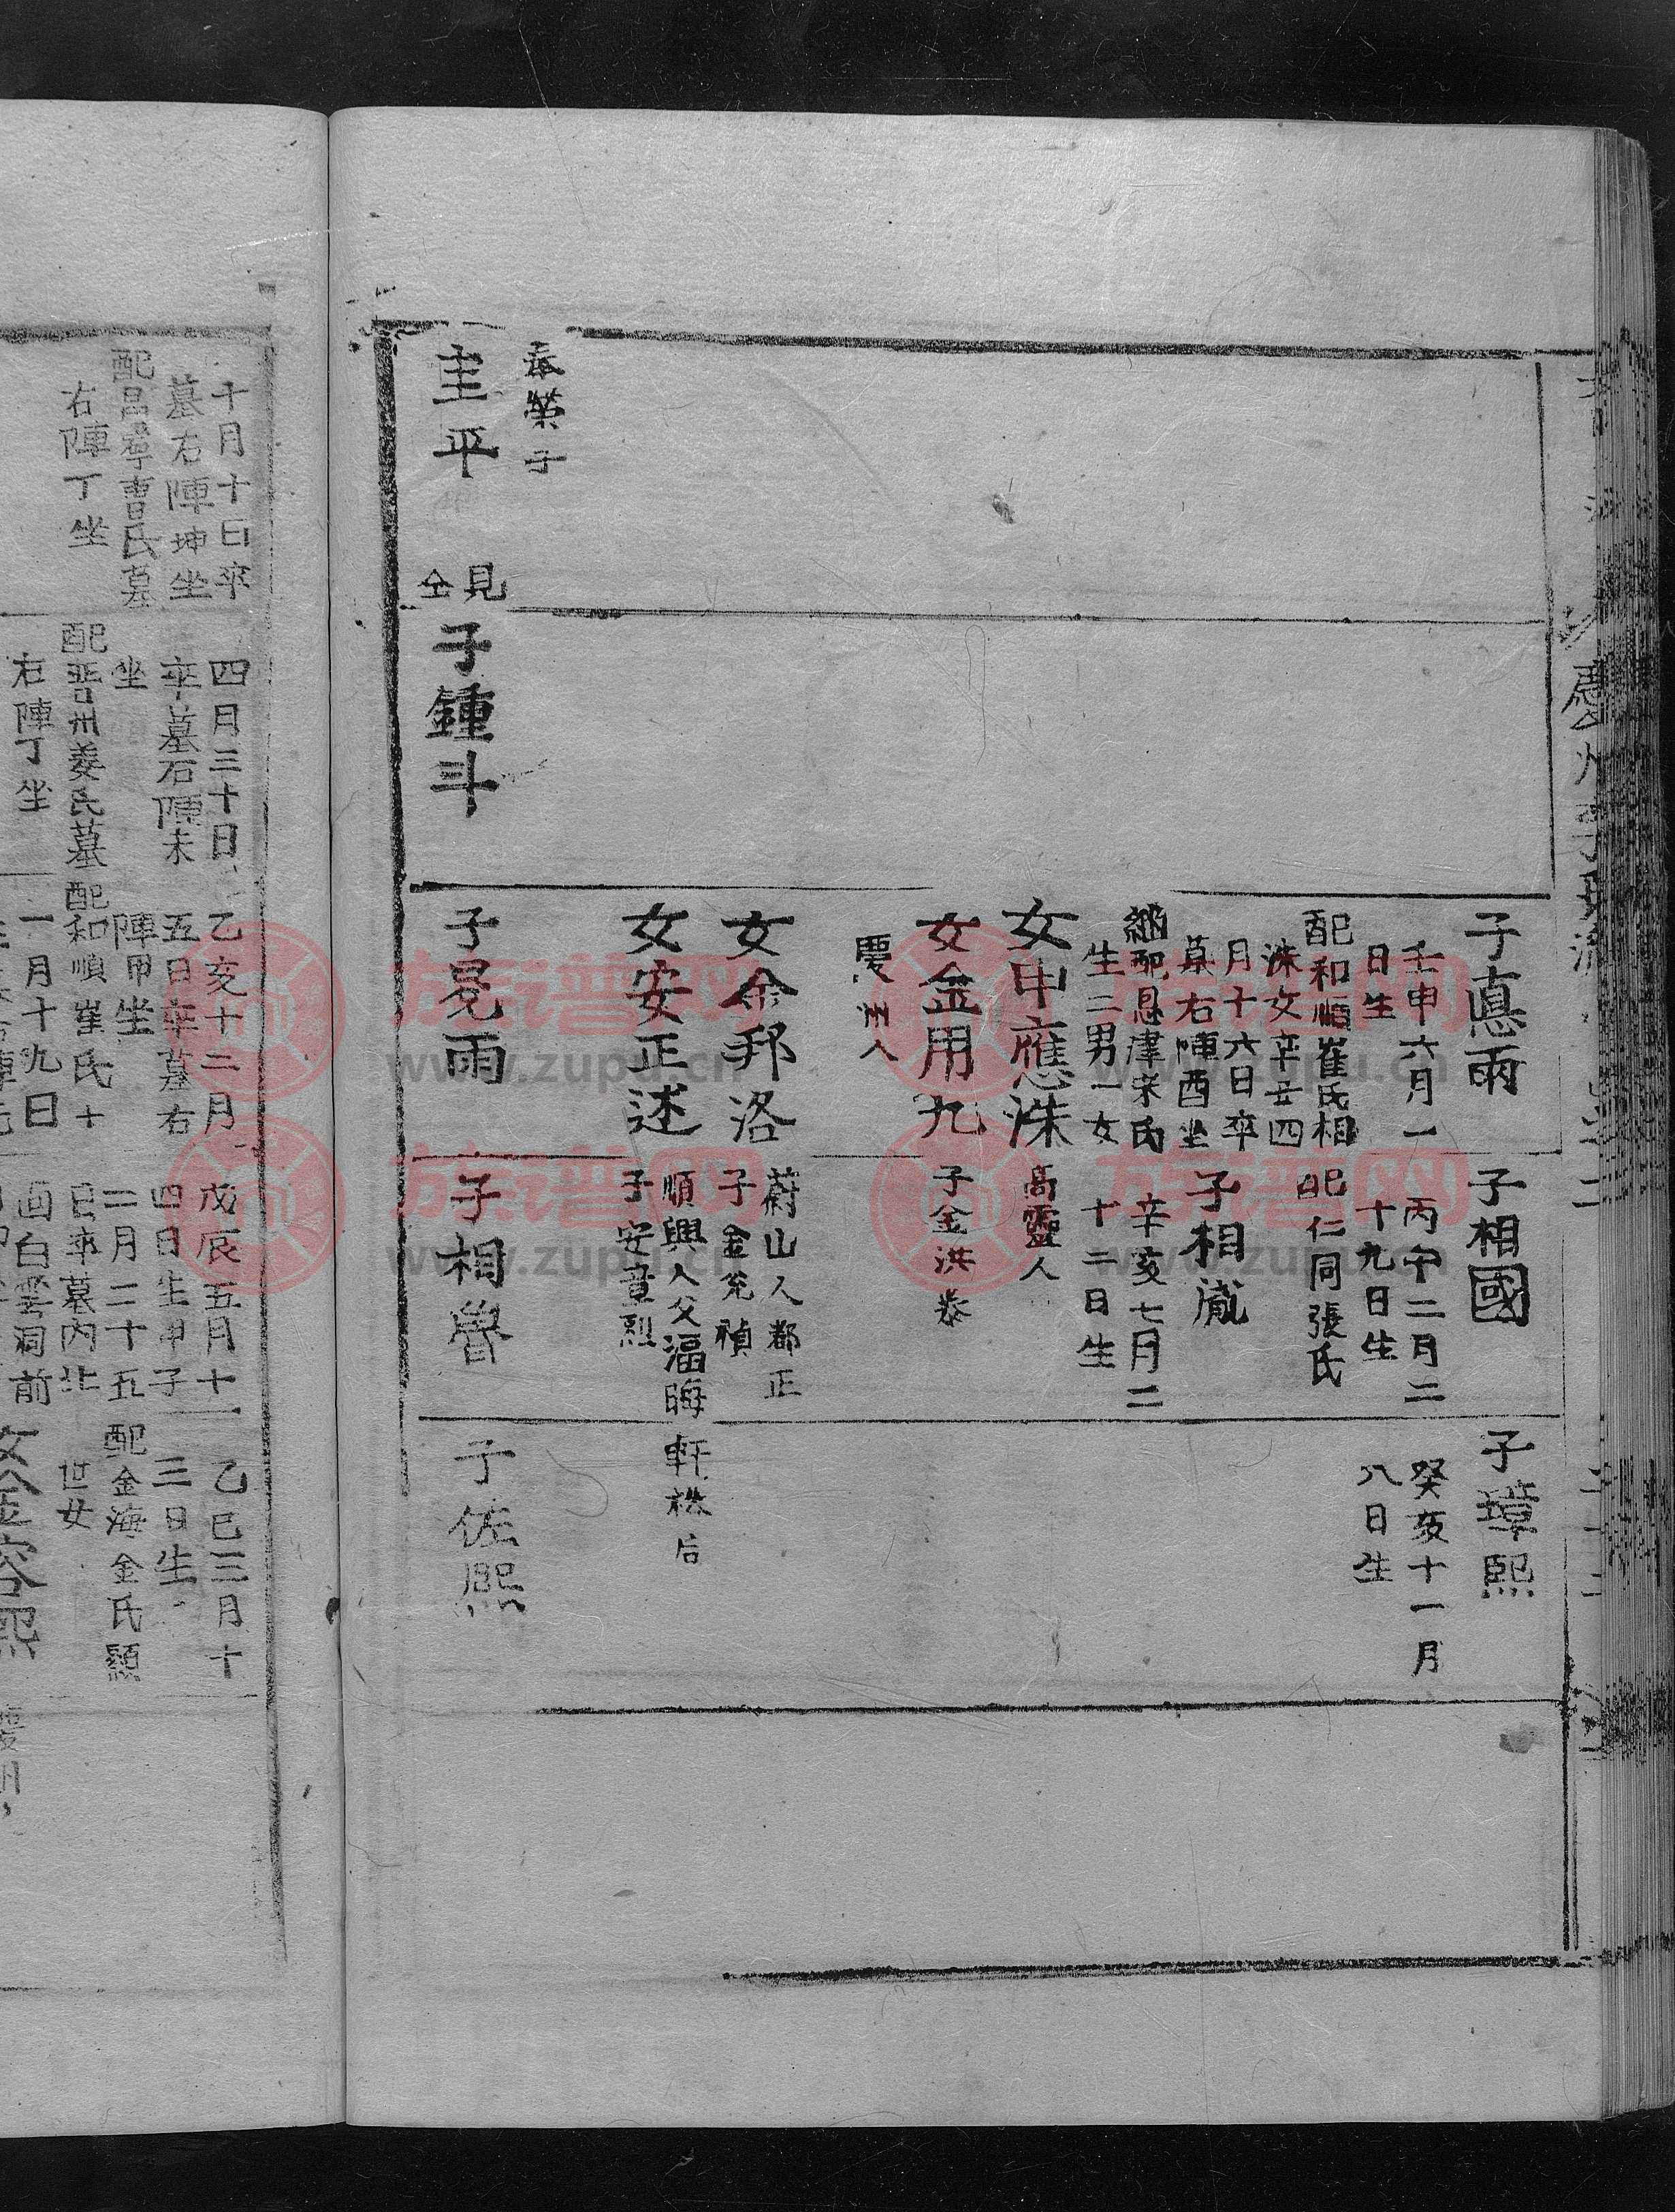 子相國
丙午二月二
十九日生
配仁同張氏
子相胤
辛亥七月二
十二日生
高靈人
子金洪泰
蔚山人都正
順興人父湢晦軒裕后
子相魯
子璋熙
癸亥十一月
八日生
子佐熙
壬申六月一
日生
配和順崔氏相
洙女辛丑四
月十六日卒
墓右陣酉坐
繼配恩津宋氏
生二男一女
女申應洙
女金用九
慶州人
女金邦洛
女安正述
子晃雨
奉榮子
圭平
見
仝
子鍾斗
十月十日卒
墓右陣坤坐
配昌寧曺氏墓
右陣丁坐
四月三十日
坐
配晋州姜氏墓
右陣丁坐
乙亥十二月
五日卒墓右
陣甲坐
配和順崔氏十
一月十九日
戊辰五月十
四日生甲子
二月二十五
日卒墓內北
面白雲洞前
乙巳三月十
三日生
配金海金氏顯
世女
族谱网
www.zupu.cn
族谱网
www.zupu.cn
族谱网
www.zupu.cn
族谱网
www.zupu.cn